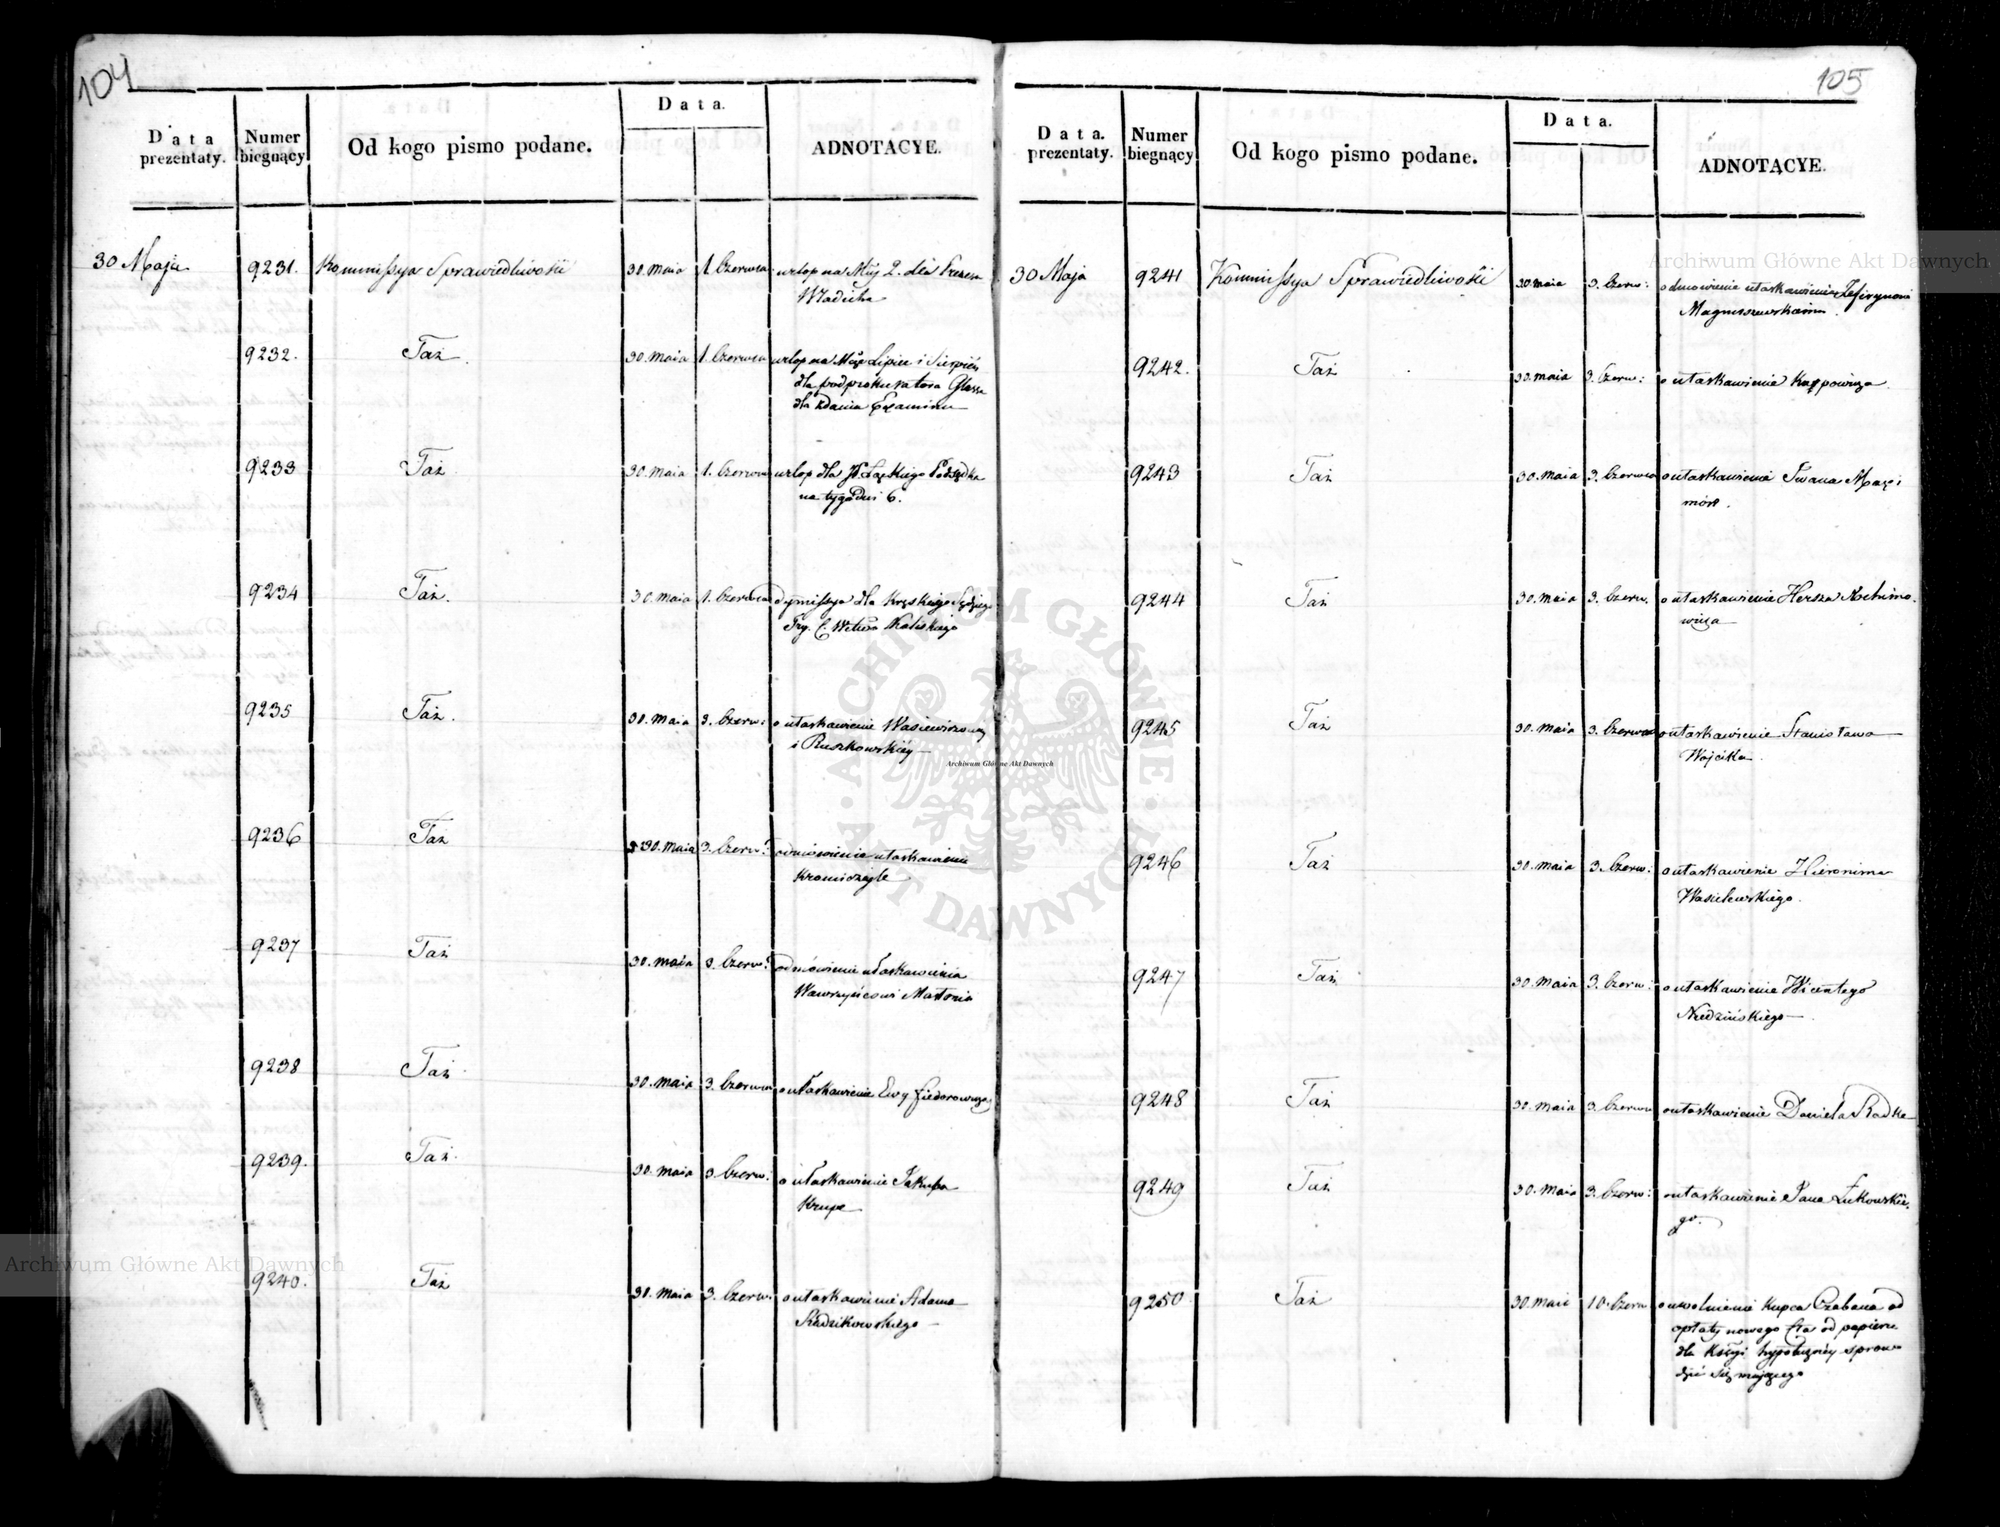 104
Data prezentaty.
Numer biegnący
Od kogo pismo podane.
Data.
ADNOTACYE.
30 Maja 9231. Kommissya Sprawiedliwości 30. Maia 1. Czerwca urlop na Mąc 2. dla Prezesa
9232. Taż 30. Maia 1. Czerwca urlop na Mąc Lipiec i Sierpień
dla podprokuratora
dla zdania Examinu
9233 Taż 30. Maia 1. Czerwca urlop dla
na tygodni 6.
9234 Taż. 30. Maia 1. Czerwca dymissya dla Sędziego
Try. C. Wdwa Kaliskiego
9235 Taż. 30. Maia 3. Czerw: o ułaskawienie
i Ruszkowskiéy
9236 Taż 30. Maia 3. Czerw: odmówienie ułaskawienia
9237 Taż 30. Maia 3. Czerw: odmówienie ułaskawienia
Wawrzyńcowi
9238 Taż 30. Maia 3. Czerwca o ułaskawienie Ewy Fiedorowicz
9239. Taż. 30. Maia 3. Czerw: o ułaskawienie Jakuba
Krupe
9240. Taż 30. Maia 3. Czerw. o ułaskawienie Adama
Radzikowskiego
105
Data. prezentaty.
Numer biegnący
Od kogo pismo podane.
Data.
ADNOTACYE.
30 Maja 9241 Kommissya Sprawiedliwości 30. Maia 3. Czerw: odmówienie ułaskawienia Zefirynowi
Magnuszewskiemu
9242. Taż 30. Maia 3. Czerw: o ułaskawienie Karpowicza
9243 Taż 30. Maia 3. Czerwca o ułaskawienie Iwana
9244 Taż 30. Maia 3. Czerw. o ułaskawienie Herszka
wicza
9245 Taż 30. Maia 3. Czerwca o ułaskawienie Stanisława
Wojcika.
9246 Taż 30. Maia 3. Czerw: o ułaskawienie Hieronima
Wasilewskiego.
9247 Taż 30. Maia 3. Czerw: o ułaskawienie Wicentego
Niedzińskiego
9248 Taż 30. Maia 3. Czerwca o ułaskawienie Daniela Radke
9249 Taż 30. Maia 3. Czerw: o ułaskawienie Jana Żukowskie-
go.
9250 Taż 30. Maia 10. Czerw o uwolnienie Kupca Czabana od
opłaty nowego Cła od papieru
dla Księgi hypoteczney sprowa
dzić się mającego
Archiwum Główne Akt Dawnych
Archiwum Główne Akt Dawnych
Archiwum Główne Akt Dawnych
ARCHIWUM GŁÓWNE AKT DAWNYCH